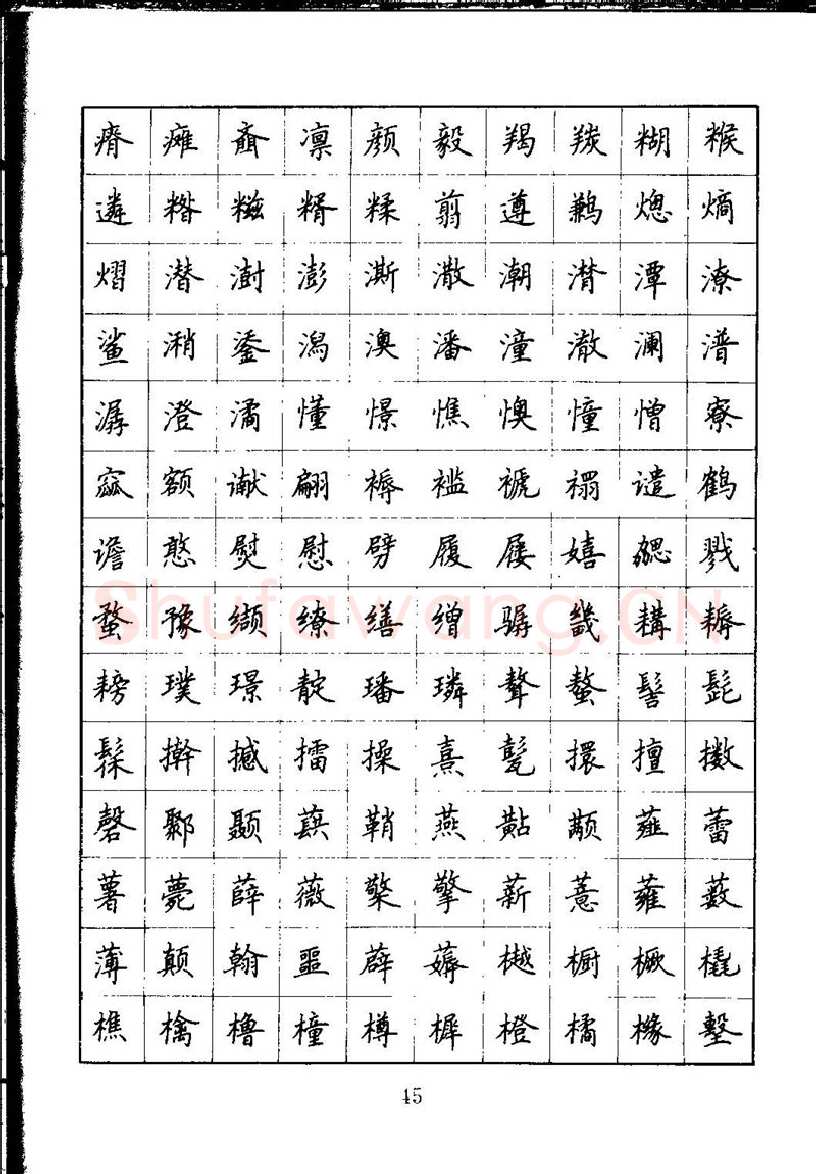 瘠 瘫 齑 凛 颜 毅 羯 羰 糊 糇
遴 糌 糍 糈 糅 翦 遵 鹣 熜 熵
熠 潜 澍 澎 澌 潵 潮 潸 潭 潦
鲨 潲 鋈 潟 澳 潘 潼 澈 澜 潽
潺 澄 潏 懂 憬 憔 懊 憧 憎 寮
窳 额 谳 翩 褥 褴 褫 禤 谴 鹤
谵 憨 熨 慰 劈 履 屦 嬉 勰 戮
蝥 豫 缬 缭 缮 缯 骣 畿 耩 耨
耪 璞 璟 靛 璠 璘 聱 螯 髻 髭
髹 擀 撼 擂 操 熹 甏 擐 擅 擞
磬 鄹 颞 蕻 鞘 燕 黇 颟 薤 蕾
薯 薨 薛 薇 檠 擎 薪 薏 蕹 薮
薄 颠 翰 噩 薜 薅 樾 橱 橛 橇
樵 檎 橹 橦 樽 樨 橙 橘 橼 墼
45
Shufawang.CN